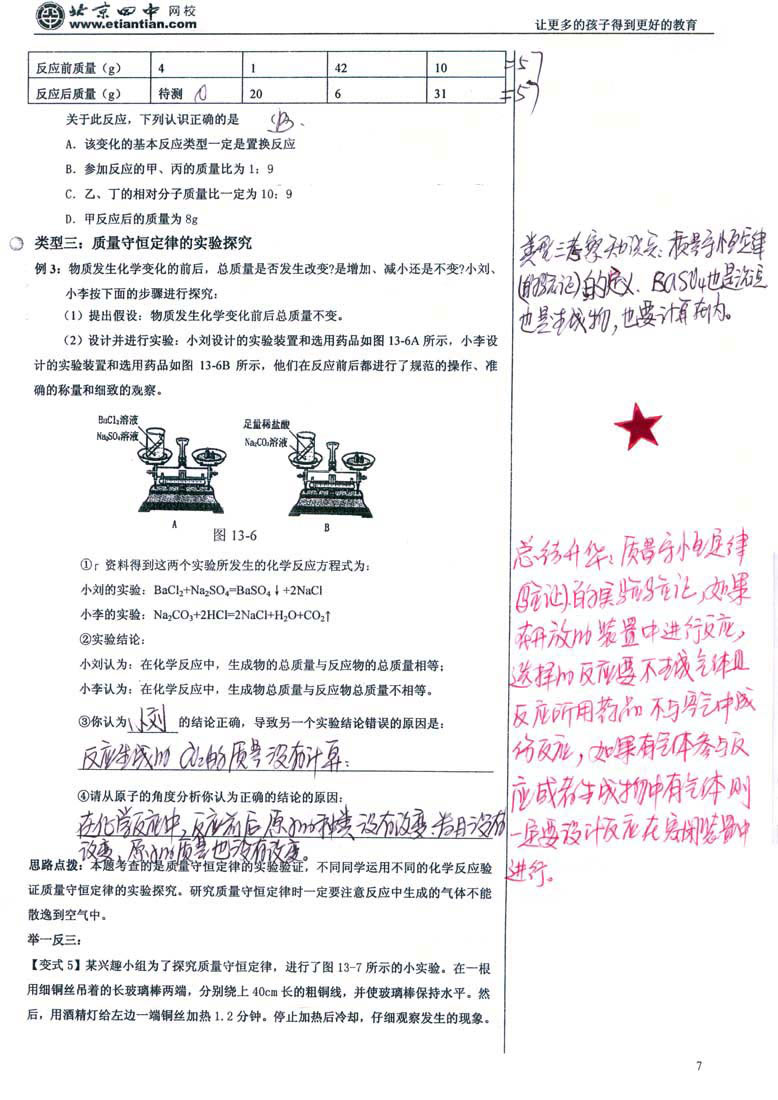 北京四中 网校
www.etiantian.com
让更多的孩子得到更好的教育
反应前质量（g） 4 1 42 10 =57
反应后质量（g） 待测 0 20 6 31 =57
关于此反应，下列认识正确的是 B.
A．该变化的基本反应类型一定是置换反应
B．参加反应的甲、丙的质量比为 1：9
C．乙、丁的相对分子质量比一定为 10：9
D．甲反应后的质量为 8g
类型三：质量守恒定律的实验探究
例 3：物质发生化学变化的前后，总质量是否发生改变?是增加、减小还是不变?小刘、
小李按下面的步骤进行探究：
（1）提出假设：物质发生化学变化前后总质量不变。
（2）设计并进行实验：小刘设计的实验装置和选用药品如图 13-6A 所示，小李设
计的实验装置和选用药品如图 13-6B 所示，他们在反应前后都进行了规范的操作、准
确的称量和细致的观察。
BaCl₂溶液
Na₂SO₄溶液
足量稀盐酸
Na₂CO₃溶液
A
B
图 13-6
①r 资料得到这两个实验所发生的化学反应方程式为：
小刘的实验：BaCl₂+Na₂SO₄=BaSO₄↓+2NaCl
小李的实验：Na₂CO₃+2HCl=2NaCl+H₂O+CO₂↑
②实验结论：
小刘认为：在化学反应中，生成物的总质量与反应物的总质量相等；
小李认为：在化学反应中，生成物总质量与反应物总质量不相等。
③你认为 小刘 的结论正确，导致另一个实验结论错误的原因是：
反应生成的CO₂的质量没有计算；
④请从原子的角度分析你认为正确的结论的原因：
在化学反应中，反应前后原子的种类没有改变，数目没有
改变，原子的质量也没有改变。
思路点拨：本题考查的是质量守恒定律的实验验证，不同同学运用不同的化学反应验
证质量守恒定律的实验探究。研究质量守恒定律时一定要注意反应中生成的气体不能
散逸到空气中。
举一反三：
【变式 5】某兴趣小组为了探究质量守恒定律，进行了图 13-7 所示的小实验。在一根
用细铜丝吊着的长玻璃棒两端，分别绕上 40cm 长的粗铜线，并使玻璃棒保持水平。然
后，用酒精灯给左边一端铜丝加热 1.2 分钟。停止加热后冷却，仔细观察发生的现象。
类型三考察知识点：质量守恒定律
(的验证)的定义．BaSO₄也是沉淀
也是生成物，也要计算在内。
总结升华：质量守恒定律
(验证)的实验验证，如果
在开放的装置中进行反应，
选择的反应要不生成气体且
反应所用药品不与空气中成
份反应，如果有气体参与反
应或者生成物中有气体则
一定要设计反应在密闭装置中
进行。
7